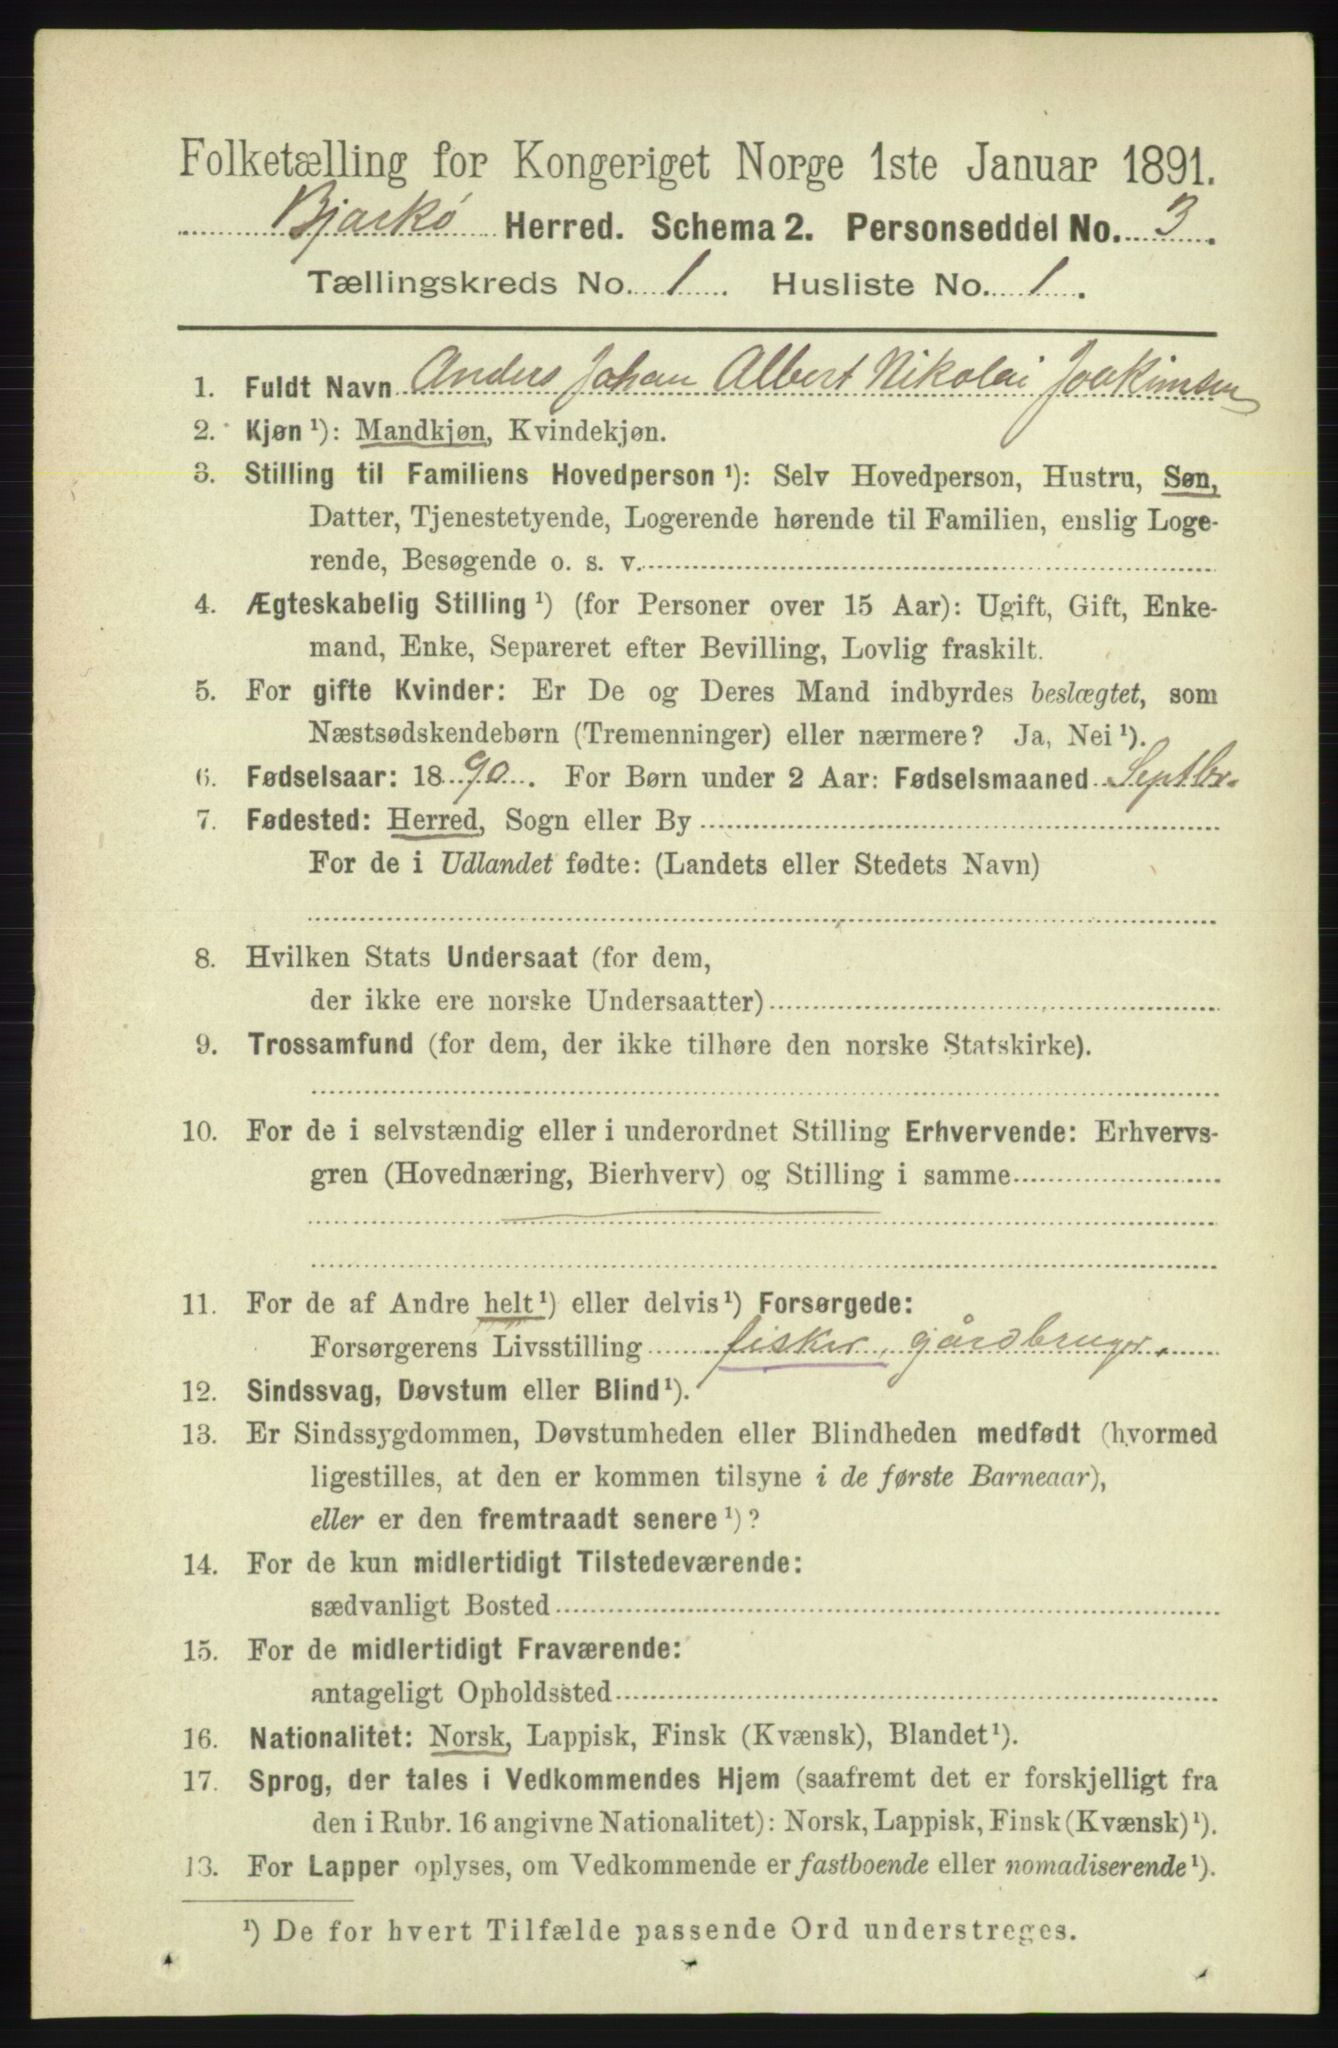 Folketælling for Kongeriget Norge 1ste Januar 1891.
Bjarkø Herred. Schema 2. Personseddel No. 3.
Tællingskreds No. 1. Husliste No. 1.
1. Fuldt Navn Anders Johan Albert Nikolai Joakimsen
2. Kjøn ¹): Mandkjøn, Kvindekjøn.
3. Stilling til Familiens Hovedperson ¹): Selv Hovedperson, Hustru, Søn,
Datter, Tjenestetyende, Logerende hørende til Familien, enslig Loge-
rende, Besøgende o. s. v.
4. Ægteskabelig Stilling ¹) (for Personer over 15 Aar): Ugift, Gift, Enke-
mand, Enke, Separeret efter Bevilling, Lovlig fraskilt.
5. For gifte Kvinder: Er De og Deres Mand indbyrdes beslægtet, som
Næstsødskendebørn (Tremenninger) eller nærmere? Ja, Nei ¹).
6. Fødselsaar: 1890. For Børn under 2 Aar: Fødselsmaaned Septbr.
7. Fødested: Herred, Sogn eller By
For de i Udlandet fødte: (Landets eller Stedets Navn)
8. Hvilken Stats Undersaat (for dem,
der ikke ere norske Undersaatter)
9. Trossamfund (for dem, der ikke tilhøre den norske Statskirke).
10. For de i selvstændig eller i underordnet Stilling Erhvervende: Erhvervs-
gren (Hovednæring, Bierhverv) og Stilling i samme
11. For de af Andre helt ¹) eller delvis ¹) Forsørgede:
Forsørgerens Livsstilling fisker, gårdbruger.
12. Sindssvag, Døvstum eller Blind ¹).
13. Er Sindssygdommen, Døvstumheden eller Blindheden medfødt (hvormed
ligestilles, at den er kommen tilsyne i de første Barneaar),
eller er den fremtraadt senere ¹)?
14. For de kun midlertidigt Tilstedeværende:
sædvanligt Bosted
15. For de midlertidigt Fraværende:
antageligt Opholdssted
16. Nationalitet: Norsk, Lappisk, Finsk (Kvænsk), Blandet ¹).
17. Sprog, der tales i Vedkommendes Hjem (saafremt det er forskjelligt fra
den i Rubr. 16 angivne Nationalitet): Norsk, Lappisk, Finsk (Kvænsk) ¹).
13. For Lapper oplyses, om Vedkommende er fastboende eller nomadiserende ¹).
¹) De for hvert Tilfælde passende Ord understreges.